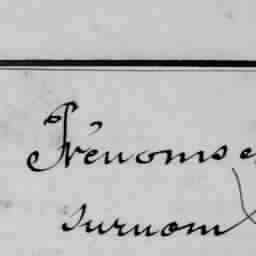 Prénoms e
surnom